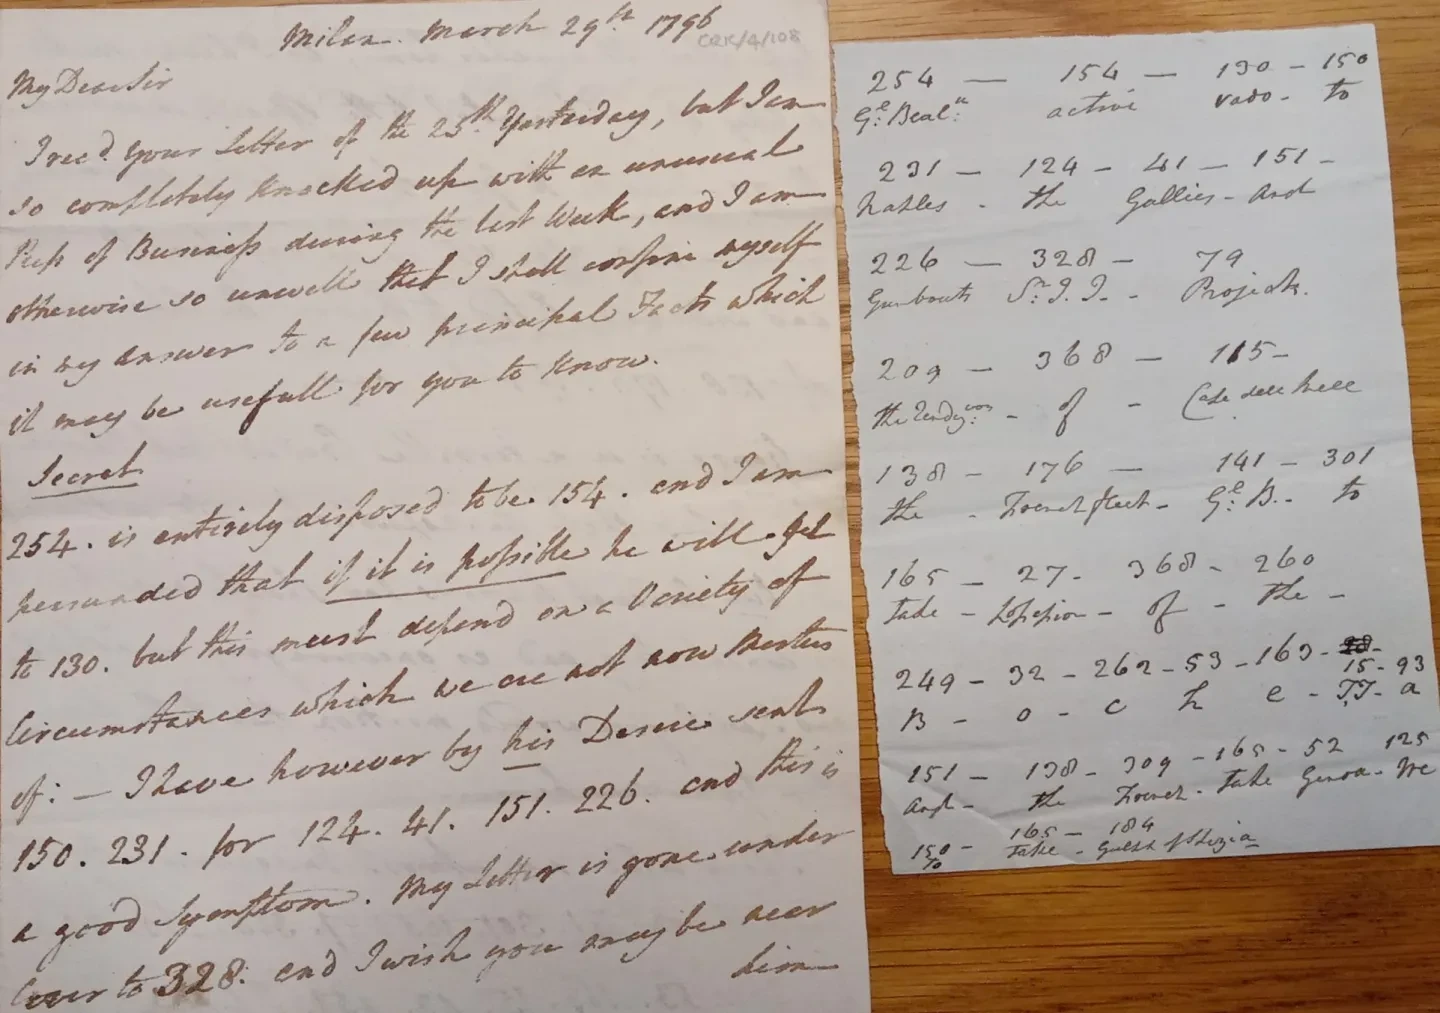 Milan. March 29th 1796
CRK/4/108
My Dear Sir
I recd. your Letter of the 25th Yesterday, but I am
so completely knocked up with an unusual
Press of Business during the last Week, and I am
otherwise so unwell that I shall confine myself
in my Answer to a few principal Facts which
it may be usefull for you to know.
Secret
254. is entirely disposed to be. 154. and I am
persuaded that if it is possible he will get
to 130. but this must depend on a Variety of
Circumstances which we are not now Masters
of: — I have however by his Desire sent
150. 231. for 124. 41. 151. 226. and this is
a good Symptom. My Letter is gone under
Cover to 328. and I wish you may be near
him
254 — 154 — 130 — 150
Gl: Bealu: active vado - to
231 — 124 - 41 — 151 -
Naples - the Gallies - and
226 — 328 - 79
Gunboats Sr. J. J. - Projects.
209 — 368 — 115 -
the Rendyvous: - of -
138 - 176 — 141 - 301
the - French fleet - Gl: B. - to
165 - 27 - 368 - 260
take - possession - of - the -
249 - 32 - 262 - 53 - 163 - 15 - 93
B - o - c h e - TT - a
151 - 138 - 309 - 165 - 52 125
And - the French - take Genoa - we
150 - 165 - 184
to take - Gulph of Spezia